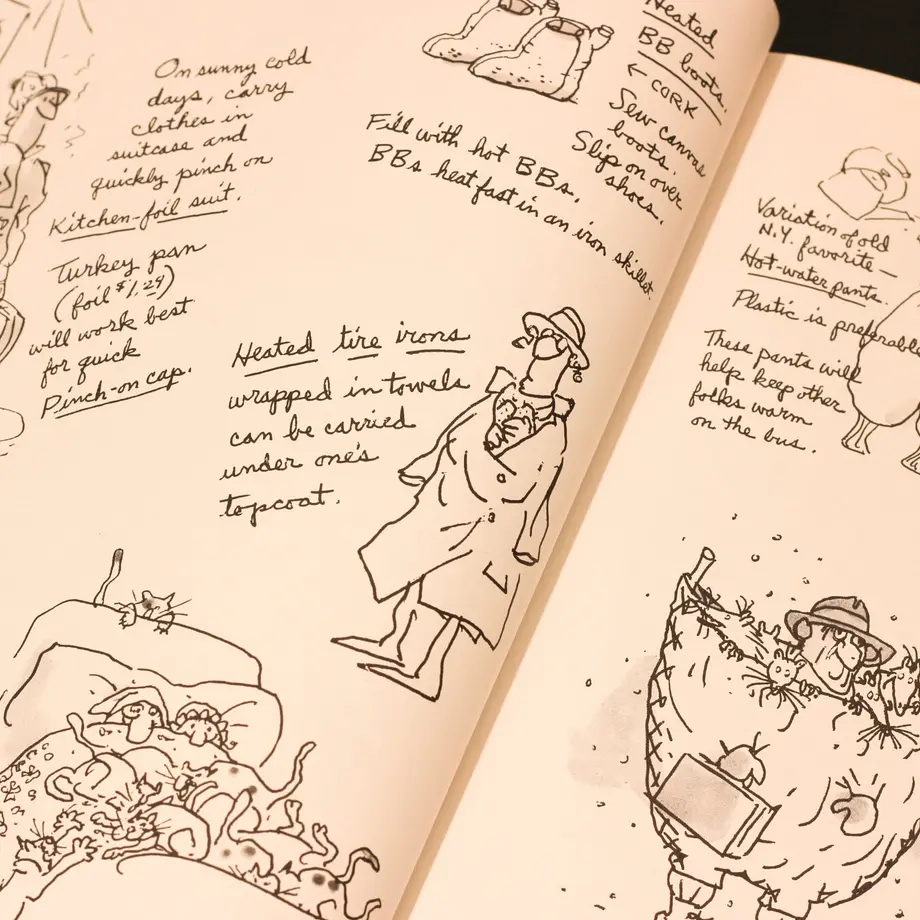 On sunny cold
days, carry
clothes in
suitcase and
quickly pinch on
Kitchen-foil suit.
Turkey pan
(foil $1.29)
will work best
for quick
Pinch-on cap.
Heated
BB boots.
← CORK
Sew canvas
boots.
Slip on over
shoes.
Fill with hot BBs.
BBs heat fast in an iron skillet.
Heated tire irons
wrapped in towels
can be carried
under one's
topcoat.
Variation of old
N.Y. favorite—
Hot-water pants.
Plastic is preferable
These pants will
help keep other
folks warm
on the bus.